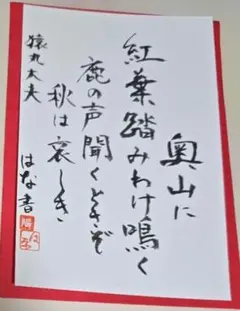 奥山に
紅葉踏みわけ鳴く
鹿の声聞くときぞ
秋は哀しき
猿丸太夫
はな書